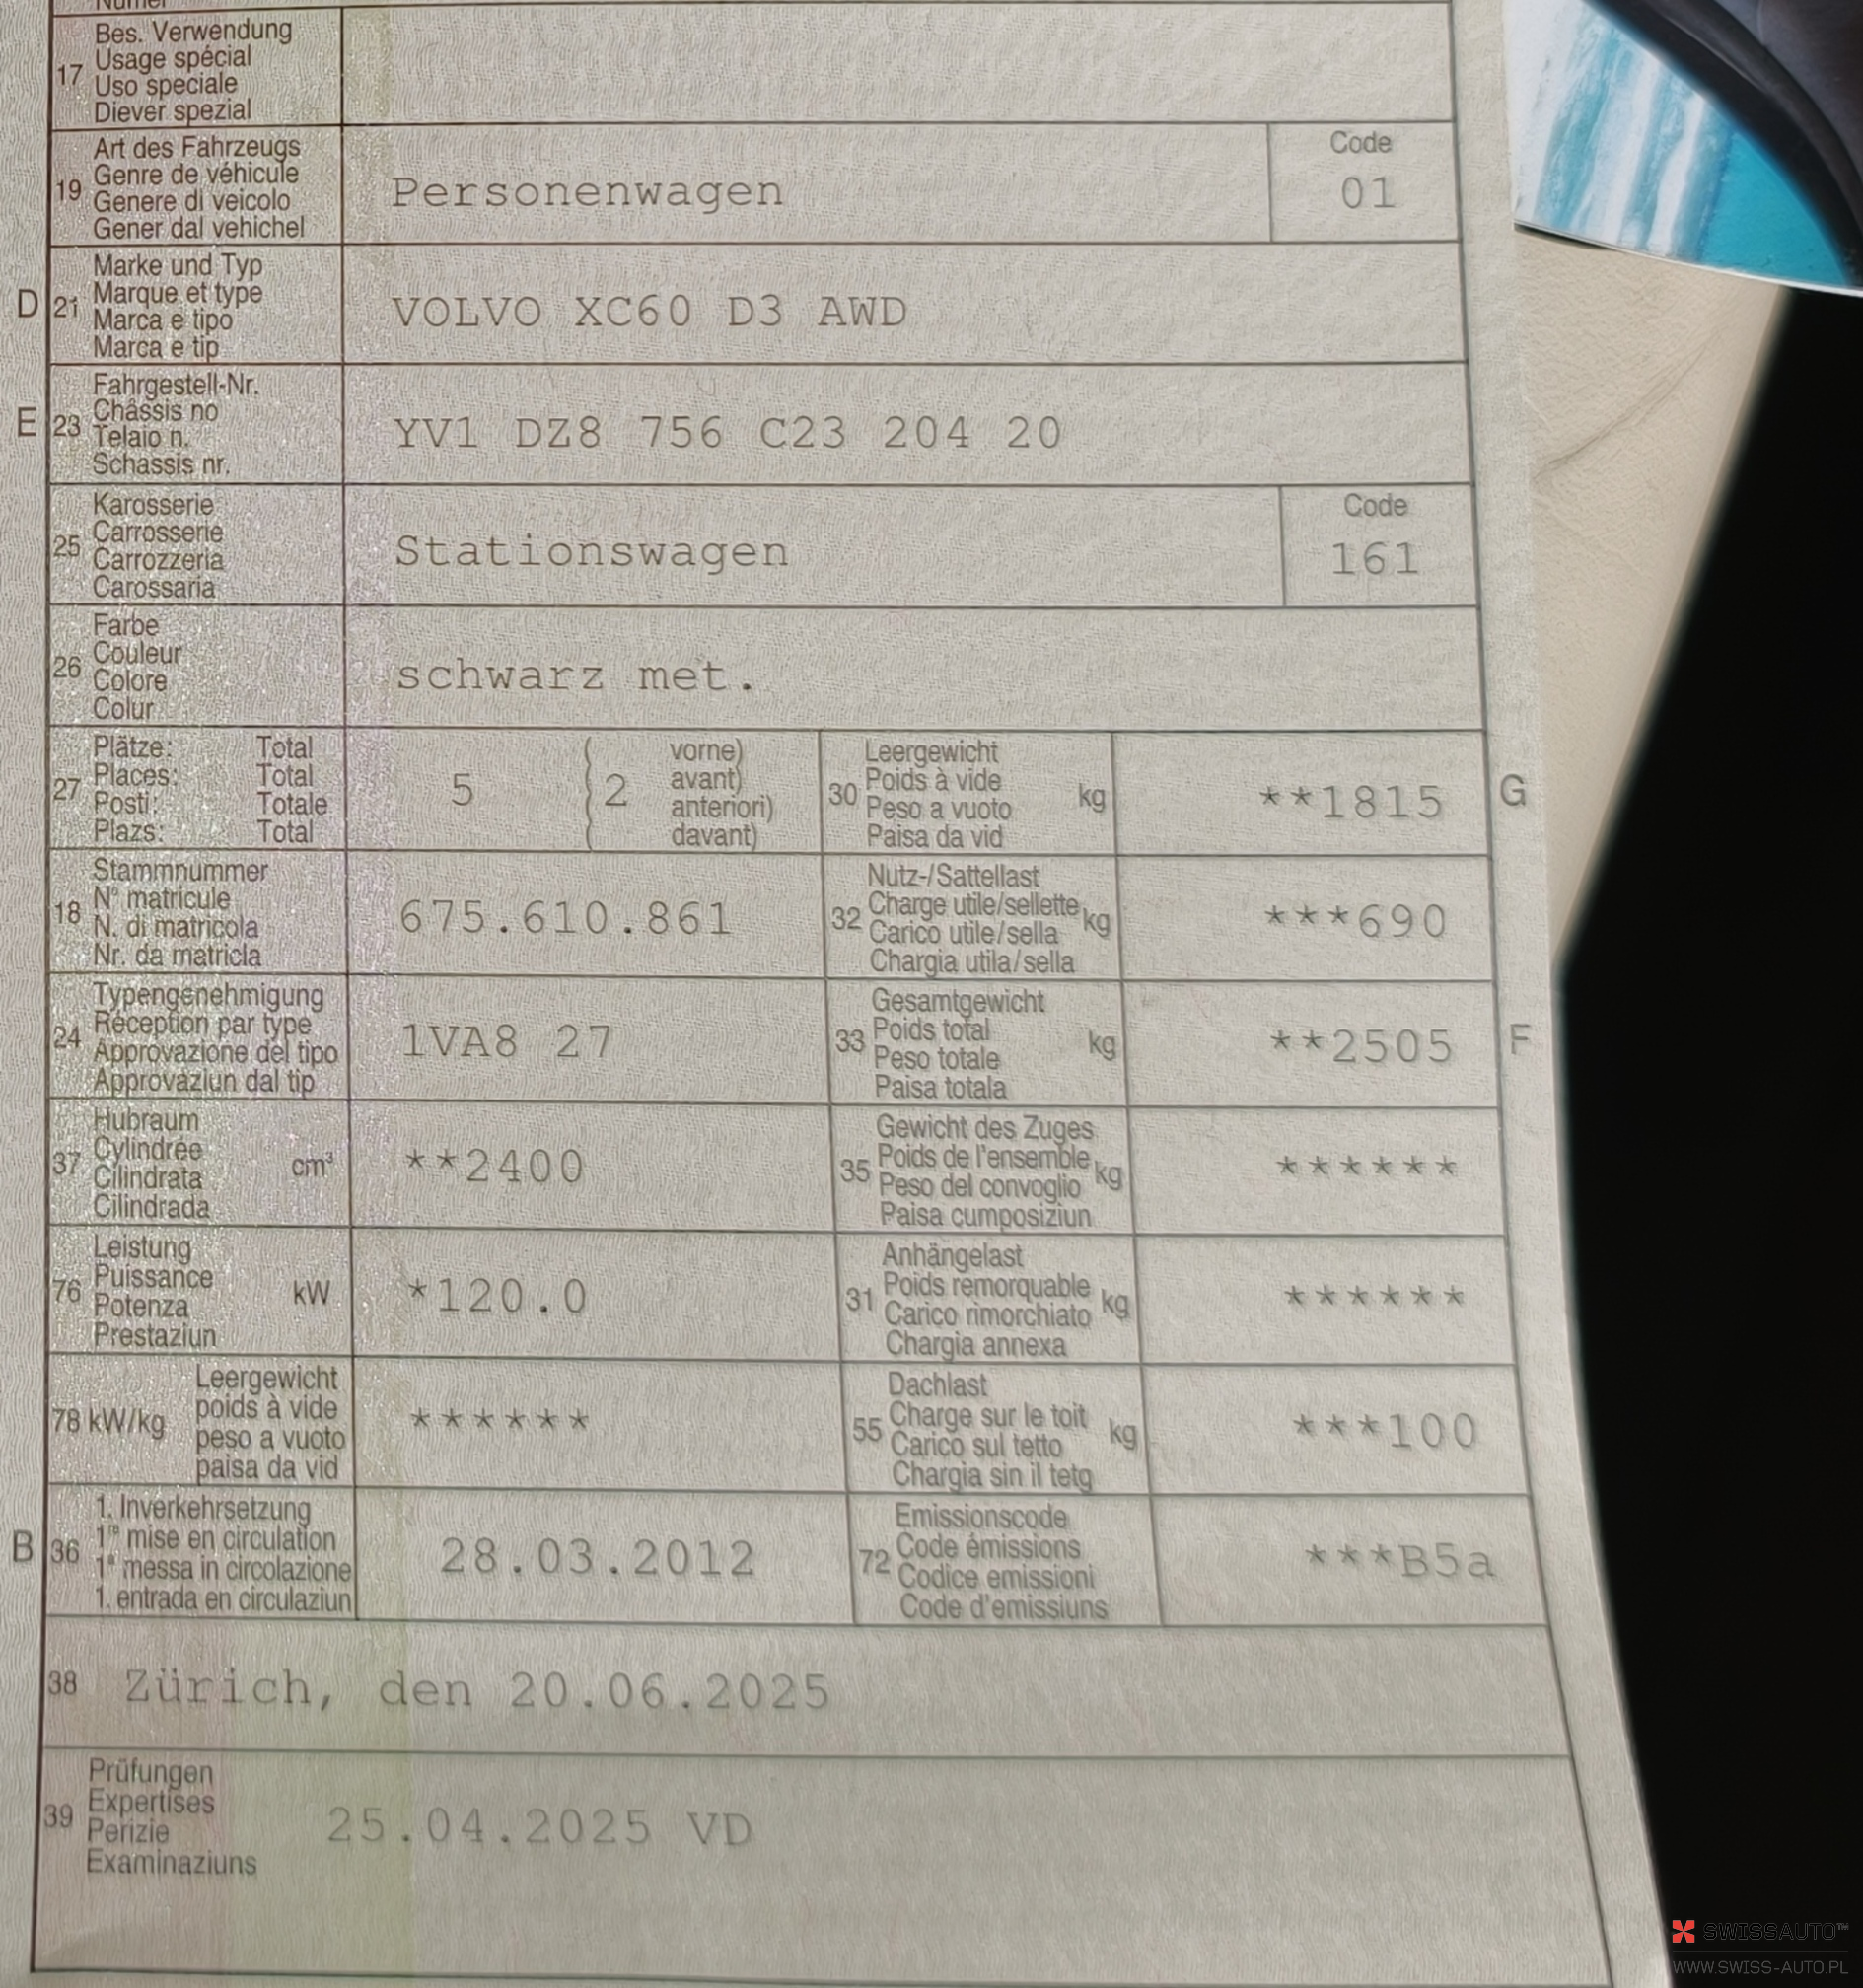 Numer
17 Bes. Verwendung
Usage spécial
Uso speciale
Diever spezial
19 Art des Fahrzeugs
Genre de véhicule
Genere di veicolo
Gener dal vehichel
Personenwagen
Code
01
D 21 Marke und Typ
Marque et type
Marca e tipo
Marca e tip
VOLVO XC60 D3 AWD
E 23 Fahrgestell-Nr.
Châssis no
Telaio n.
Schassis nr.
YV1 DZ8 756 C23 204 20
25 Karosserie
Carrosserie
Carrozzeria
Carossaria
Stationswagen
Code
161
26 Farbe
Couleur
Colore
Colur
schwarz met.
27 Plätze: Total
Places: Total
Posti: Totale
Plazs: Total
5 ( 2 vorne)
avant)
anteriori)
davant)
30 Leergewicht
Poids à vide kg
Peso a vuoto
Paisa da vid
**1815 G
18 Stammnummer
N° matricule
N. di matricola
Nr. da matricla
675.610.861
32 Nutz-/Sattellast
Charge utile/sellette kg
Carico utile/sella
Chargia utila/sella
***690
24 Typengenehmigung
Réception par type
Approvazione del tipo
Approvaziun dal tip
1VA8 27
33 Gesamtgewicht
Poids total kg
Peso totale
Paisa totala
**2505 F
37 Hubraum
Cylindrée cm³
Cilindrata
Cilindrada
**2400
35 Gewicht des Zuges
Poids de l'ensemble kg
Peso del convoglio
Paisa cumposiziun
******
76 Leistung
Puissance kW
Potenza
Prestaziun
*120.0
31 Anhängelast
Poids remorquable kg
Carico rimorchiato
Chargia annexa
******
78 kW/kg Leergewicht
poids à vide
peso a vuoto
paisa da vid
******
55 Dachlast
Charge sur le toit kg
Carico sul tetto
Chargia sin il tetg
***100
B 36 1. Inverkehrsetzung
1re mise en circulation
1a messa in circolazione
1. entrada en circulaziun
28.03.2012
72 Emissionscode
Code émissions
Codice emissioni
Code d'emissiuns
***B5a
38 Zürich, den 20.06.2025
39 Prüfungen
Expertises
Perizie
Examinaziuns
25.04.2025 VD
SWISSAUTO™
WWW.SWISS-AUTO.PL